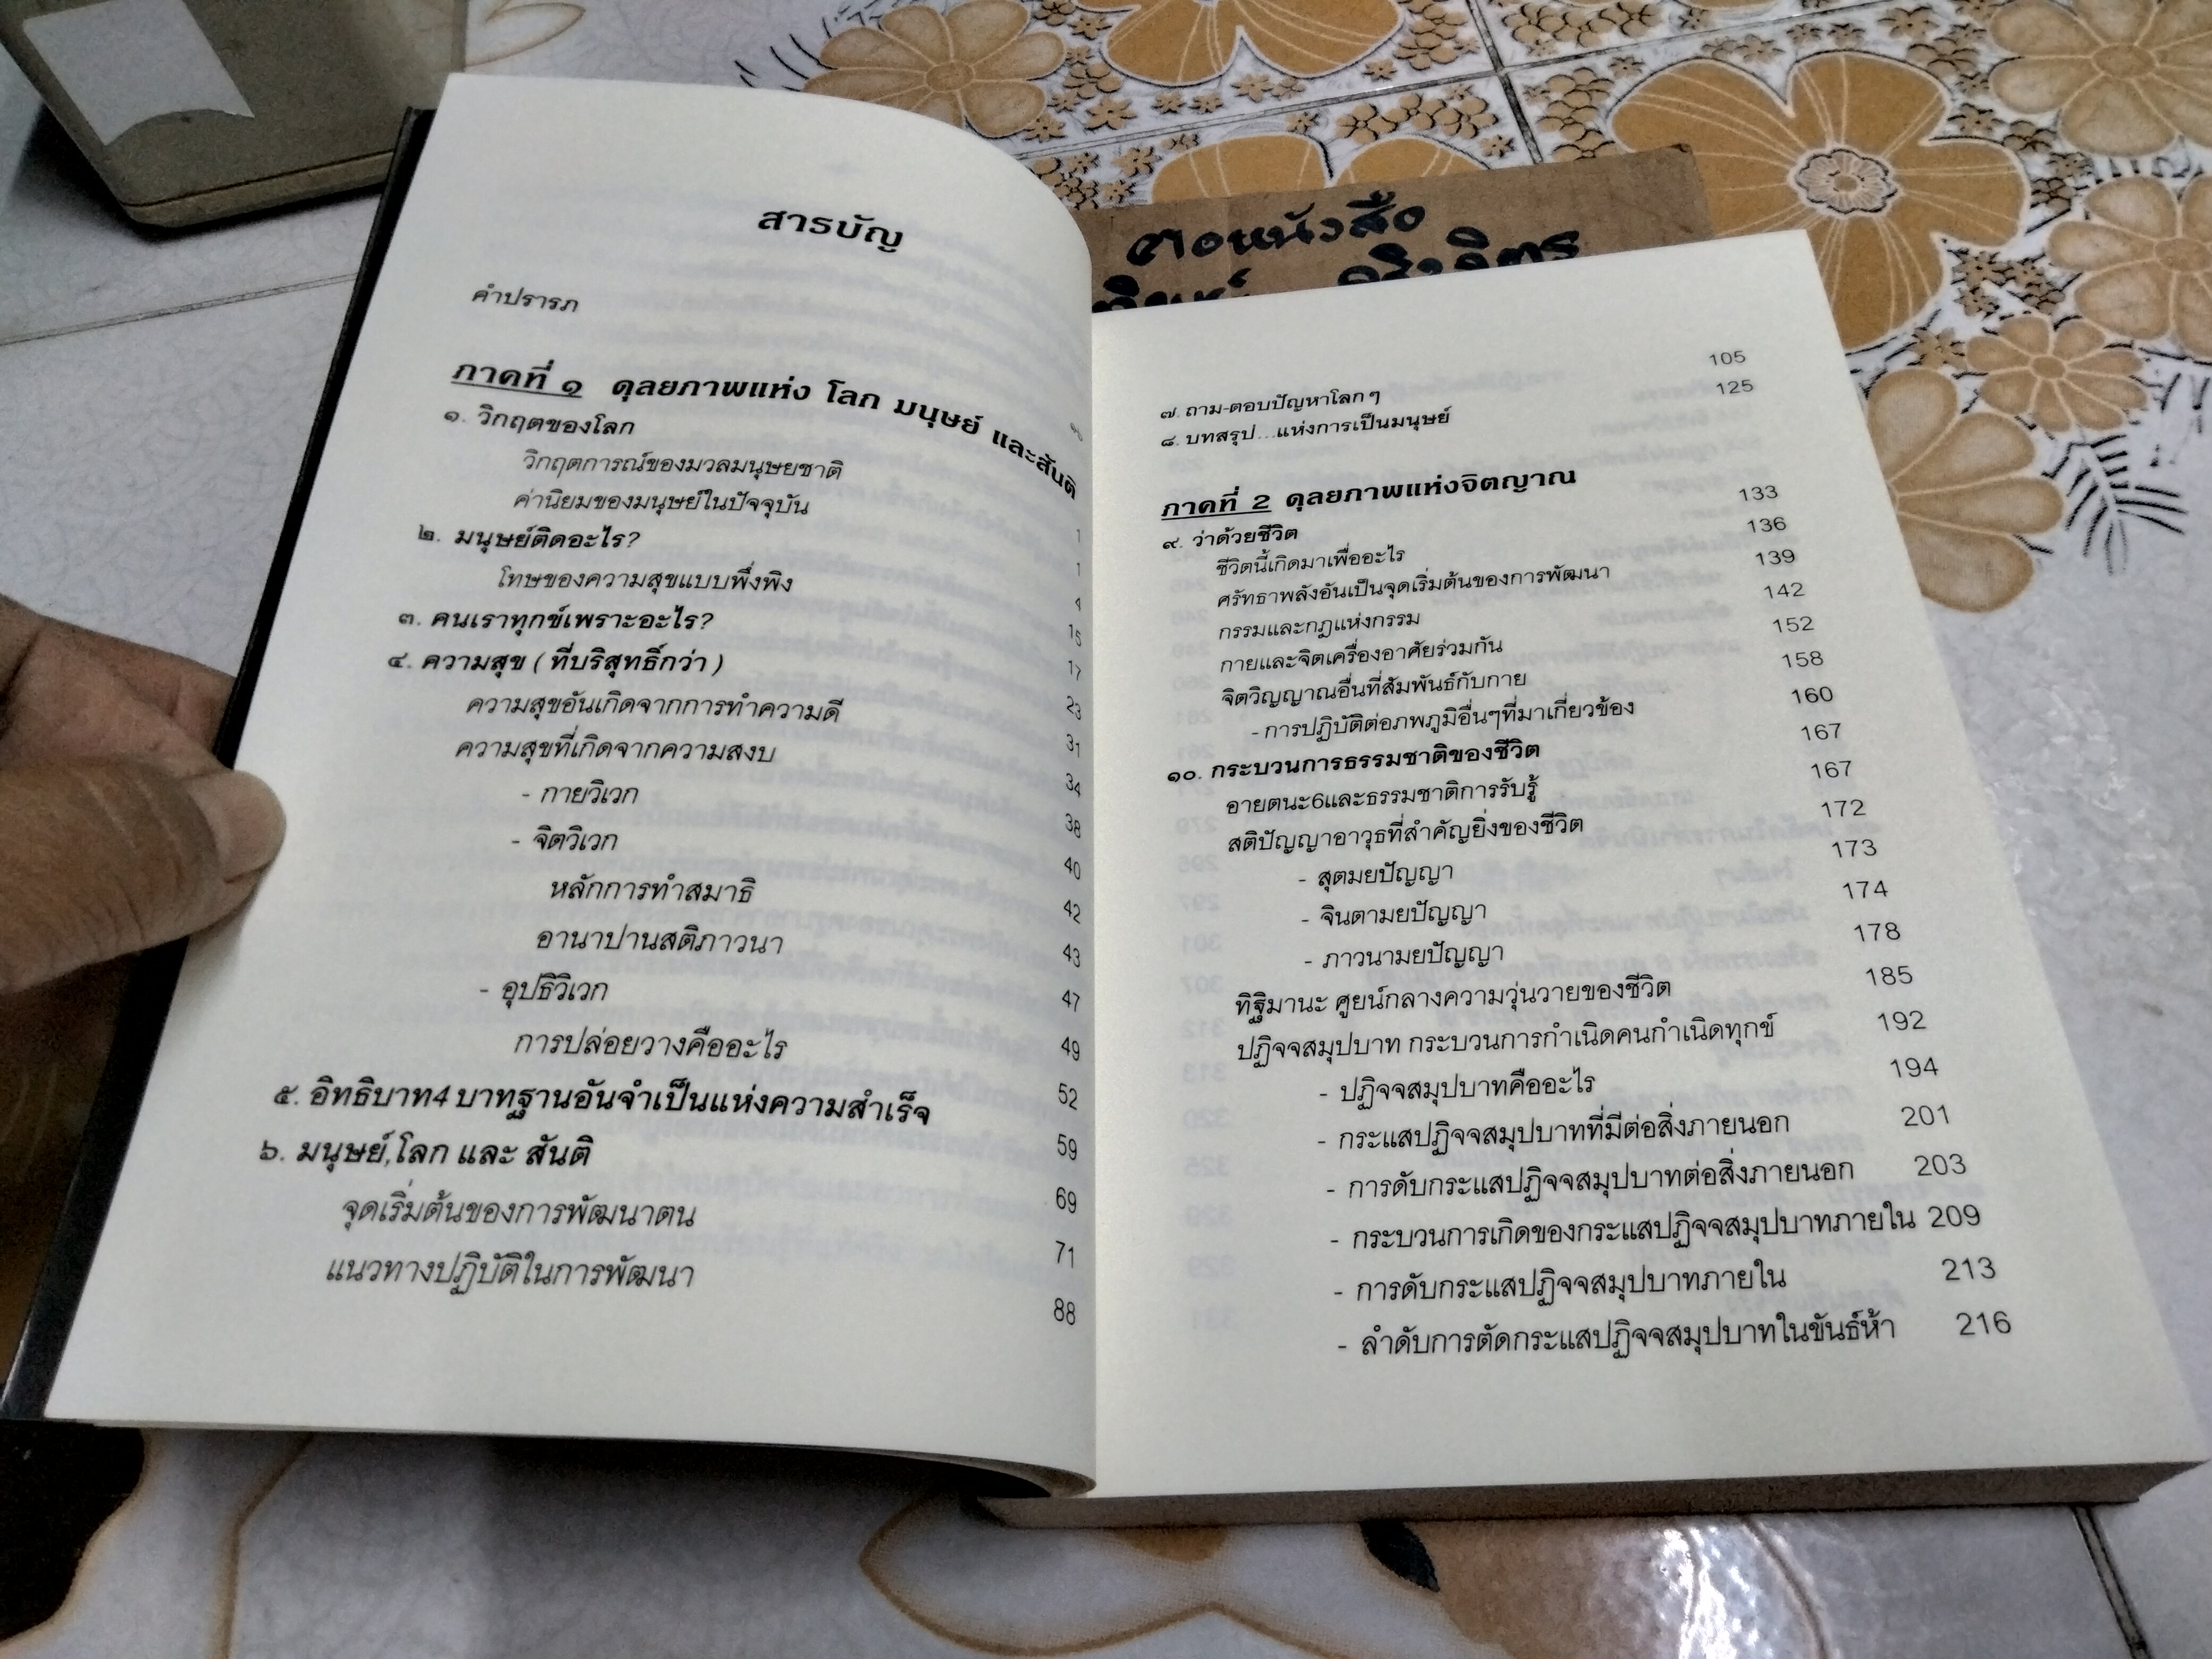 สารบัญ
คำปรารภ
ภาคที่ ๑ ดุลยภาพแห่ง โลก มนุษย์ และสันติ
๑. วิกฤตของโลก 1
วิกฤตการณ์ของมวลมนุษยชาติ 1
ค่านิยมของมนุษย์ในปัจจุบัน 4
๒. มนุษย์ติดอะไร? 15
โทษของความสุขแบบพึ่งพิง 17
๓. คนเราทุกข์เพราะอะไร? 23
๔. ความสุข ( ที่บริสุทธิ์กว่า ) 31
ความสุขอันเกิดจากการทำความดี 34
ความสุขที่เกิดจากความสงบ 38
- กายวิเวก 40
- จิตวิเวก 42
หลักการทำสมาธิ 43
อานาปานสติภาวนา 47
- อุปธิวิเวก 49
การปล่อยวางคืออะไร 52
๕. อิทธิบาท4 บาทฐานอันจำเป็นแห่งความสำเร็จ 59
๖. มนุษย์,โลก และ สันติ 69
จุดเริ่มต้นของการพัฒนาตน 71
แนวทางปฏิบัติในการพัฒนา 88
ต่อหนังสือ
๗. ถาม-ตอบปัญหาโลก ๆ 105
๘. บทสรุป...แห่งการเป็นมนุษย์ 125
ภาคที่ 2 ดุลยภาพแห่งจิตญาณ
๙. ว่าด้วยชีวิต 133
ชีวิตนี้เกิดมาเพื่ออะไร 136
ศรัทธาพลังอันเป็นจุดเริ่มต้นของการพัฒนา 139
กรรมและกฎแห่งกรรม 142
กายและจิตเครื่องอาศัยร่วมกัน 152
จิตวิญญาณอื่นที่สัมพันธ์กับกาย 158
- การปฏิบัติต่อภพภูมิอื่นๆที่มาเกี่ยวข้อง 160
๑๐. กระบวนการธรรมชาติของชีวิต 167
อายตนะ6และธรรมชาติการรับรู้ 167
สติปัญญาอาวุธที่สำคัญยิ่งของชีวิต 172
- สุตมยปัญญา 173
- จินตามยปัญญา 174
- ภาวนามยปัญญา 178
ทิฐิมานะ ศูยน์กลางความวุ่นวายของชีวิต 185
ปฏิจจสมุปบาท กระบวนการกำเนิดคนกำเนิดทุกข์ 192
- ปฏิจจสมุปบาทคืออะไร 194
- กระแสปฏิจจสมุปบาทที่มีต่อสิ่งภายนอก 201
- การดับกระแสปฏิจจสมุปบาทต่อสิ่งภายนอก 203
- กระบวนการเกิดของกระแสปฏิจจสมุปบาทภายใน 209
- การดับกระแสปฏิจจสมุปบาทภายใน 213
- ลำดับการตัดกระแสปฏิจจสมุปบาทในขันธ์ห้า 216